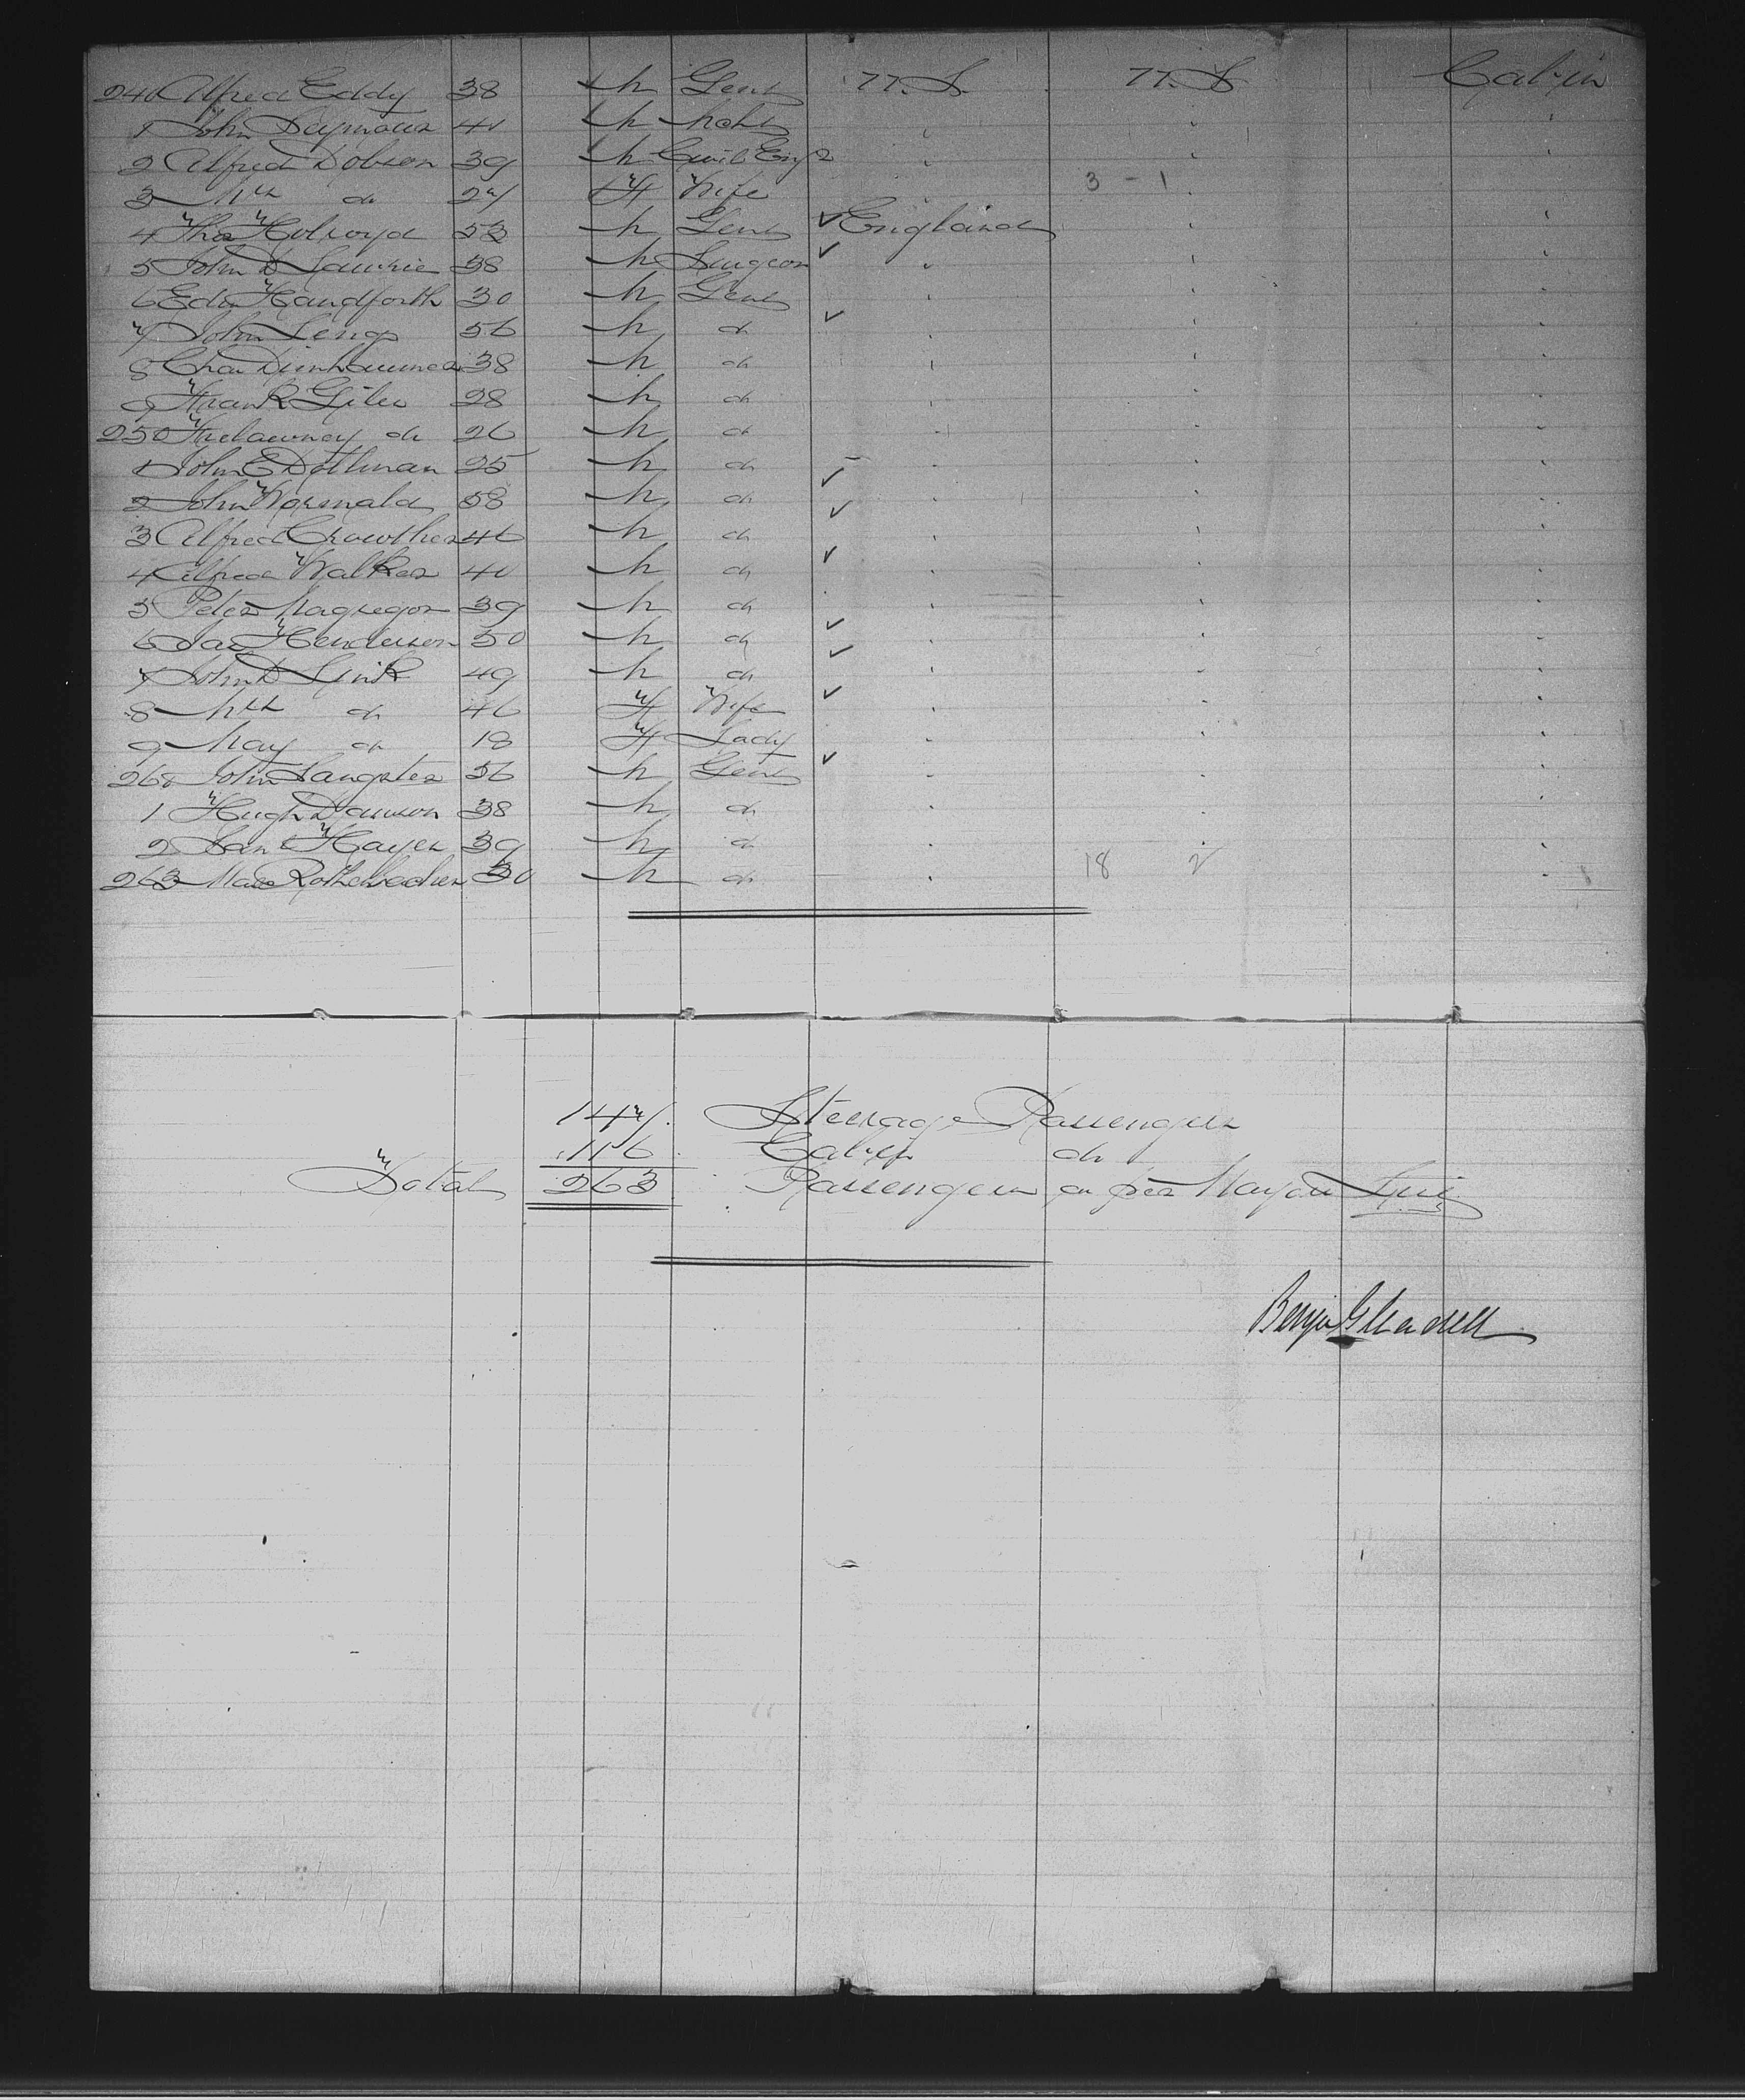 240 Alfred Eddy 38 M Gent U.S. U.S. Cabin
1 John Seymour 40 M
2 Alfred Dobson 39 M Civil Engr
3 Mrs do 27 F Wife 3 - 1
4 Thos Holroyd 53 M Gent ✓ England
5 John D Lawrie 38 M Surgeon ✓
6 Edw Handforth 30 M Gent
7 John Leng 56 M do ✓
8 Chas 38 M do
9 Frank Giles 28 M do
250 Trelawney do 26 M do
1 John E Dollman 25 M do
2 John Wormald 58 M do ✓
3 Alfred Crowther 46 M do ✓
4 Alfred Walker 40 M do ✓
5 Peter Macgregor 39 M do
6 Jas Henderson 50 M do ✓
7 John D Link 49 M do ✓
8 Mrs do 46 F Wife ✓
9 May do 18 F Lady
260 John Sangster 56 M Gent ✓
1 Hugh Dawson 38 M do
2 Saml Hayes 39 M do
263 Max 30 M do 18 2
147 Steerage Passengers
116 Cabin do
Total 263 Passengers
Benjn Gleadell